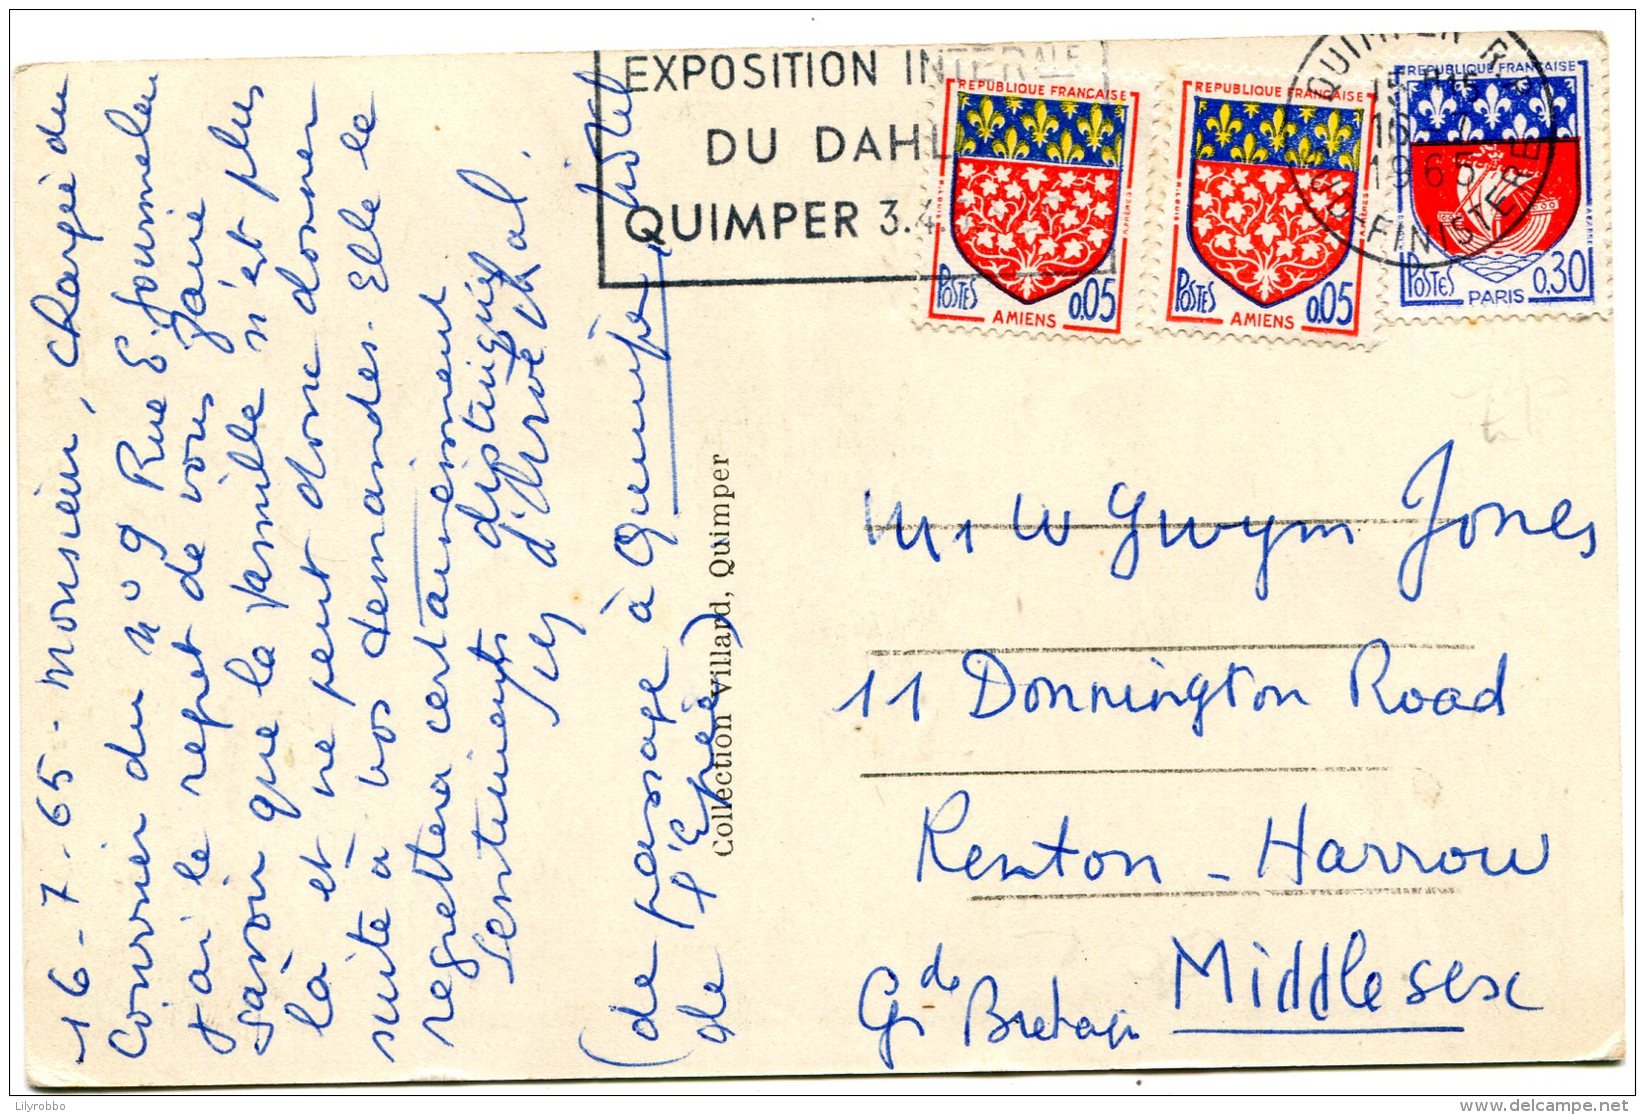 16-7-65- Monsieur, chargée du
courrier du n° 9 Rue E. fournelau
j'ai le regret de vous faire
savoir que la famille n'est plus
là et ne peut donc donner
suite à vos demandes. Elle le
regrettera certainement
Sentiments distingués
chal.
(de passage à Quimper, hôtel
de l'Epée)
Collection Villard, Quimper
EXPOSITION INTERALE
DU DAHL
QUIMPER 3.4.
REPUBLIQUE FRANÇAISE
POSTES 0,05
AMIENS
REPUBLIQUE FRANÇAISE
POSTES 0,05
AMIENS
REPUBLIQUE FRANÇAISE
POSTES 0,30
PARIS
QUIMPER R.P.
15H15
16-7
1965
FINISTERE
Mr W Gwym Jones
11 Donnington Road
Kenton - Harrow
Middlesex
Gde Bretagne
Lilyrobbo
delcampe.net